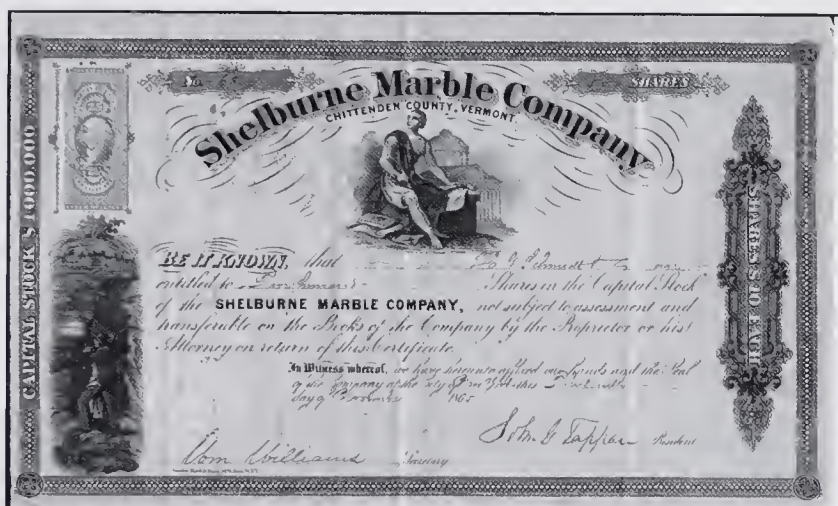 No.
SHARES
Shelburne Marble Company
CHITTENDEN COUNTY, VERMONT.
CAPITAL STOCK $1000.000
SHARES $10 EACH
BE IT KNOWN, that
entitled to Shares in the Capital Stock
of the SHELBURNE MARBLE COMPANY, not subject to assessment and
transferable on the Books of the Company by the Proprietor or his
Attorney on return of this Certificate.
In Witness whereof, we have hereunto affixed our hands and the Seal
of the Company at the City of New York this
day of 1865
John G Tappan President
Wm Williams Secretary